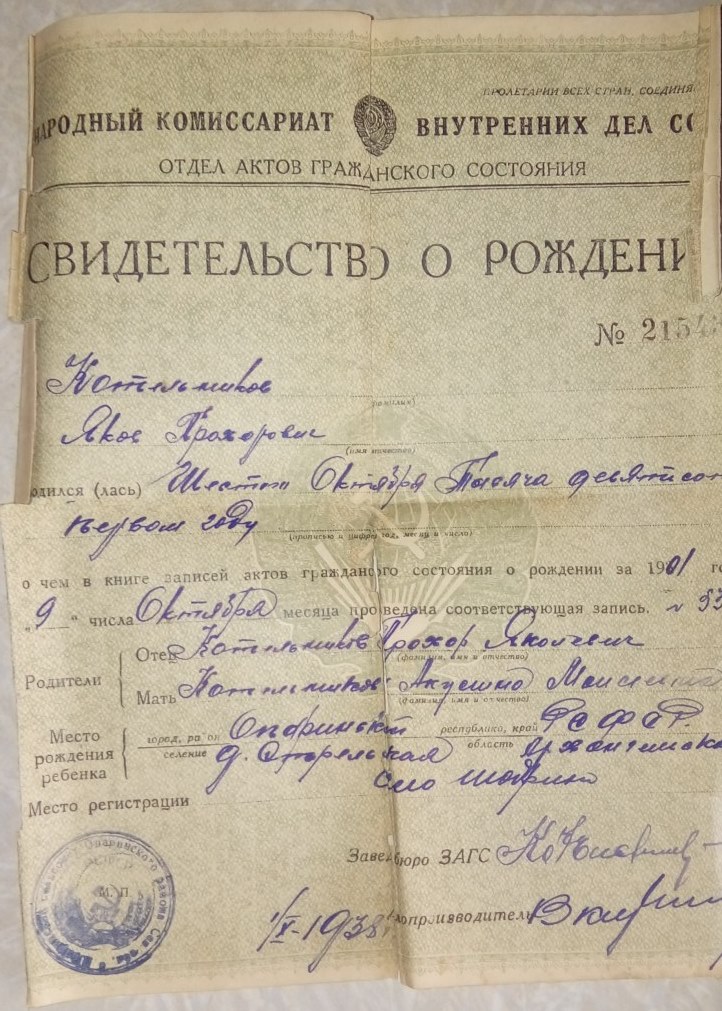 ПРОЛЕТАРИИ ВСЕХ СТРАН, СОЕДИНЯ
НАРОДНЫЙ КОМИССАРИАТ ВНУТРЕННИХ ДЕЛ СС
ОТДЕЛ АКТОВ ГРАЖДАНСКОГО СОСТОЯНИЯ
СВИДЕТЕЛЬСТВО О РОЖДЕНИ
№ 2154
Котельников
(фамилия)
Яков Прохорович
(имя отчество)
одился (лась) Шестого Октября Тысяча девятисот
первом году
(прописью и цифрой год, месяц и число)
о чем в книге записей актов гражданского состояния о рождении за 1901 го
„9“ числа Октября месяца проведена соответствующая запись. № 33
Родители
Отец Котельников Прохор Яколевич
(фамилия, имя и отчество)
Мать Котельникова Акулина Моисеевна
(фамилия, имя и отчество)
Место рождения ребенка
город, район Опаринский республика, край РСФСР.
селение д. Стрельская область Архангельска
Место регистрации село Шабуры
Завед. бюро ЗАГС
1/X-1938 Делопроизводитель
М. П.